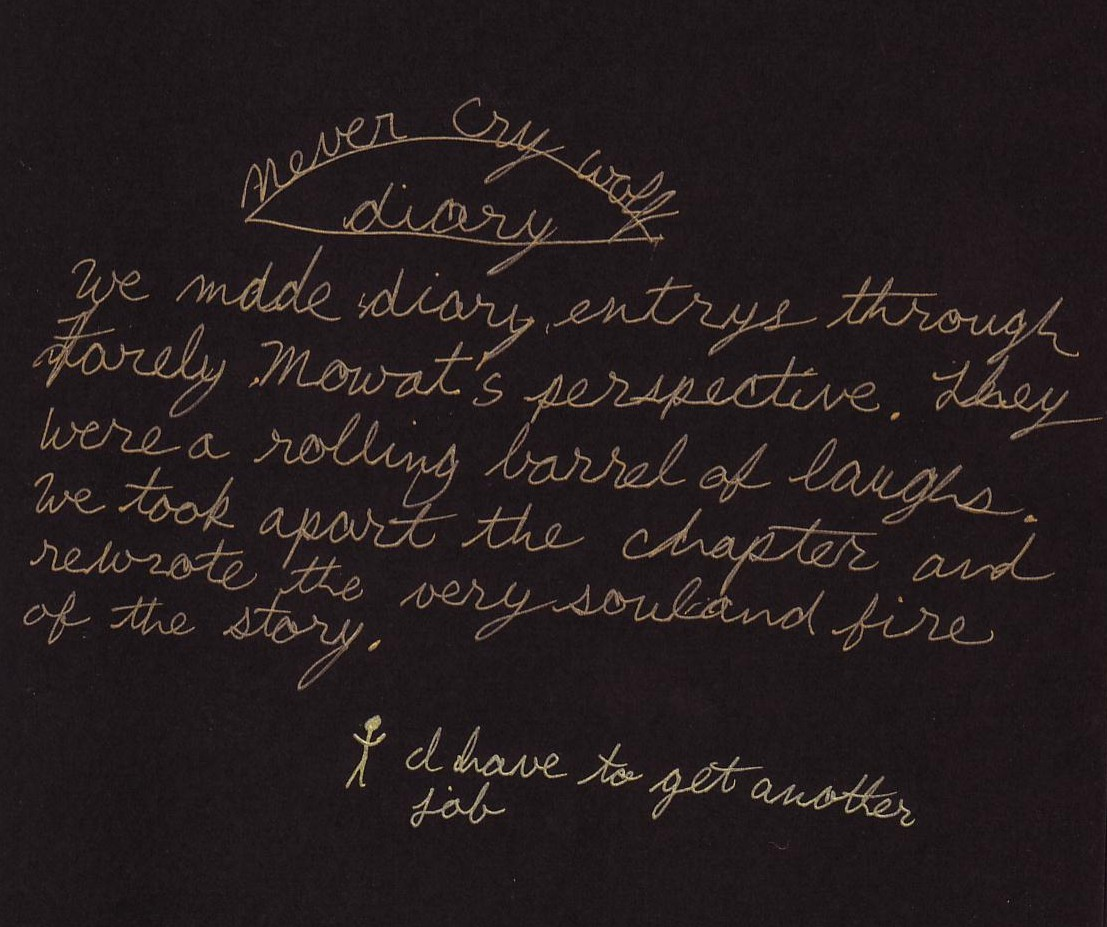 never cry wolf
diary
We made diary entrys through
farely Mowat's perspective. They
were a rolling barrel of laughs.
We took apart the chapter and
rewrote the very soul and fire
of the story.
I have to get another
job